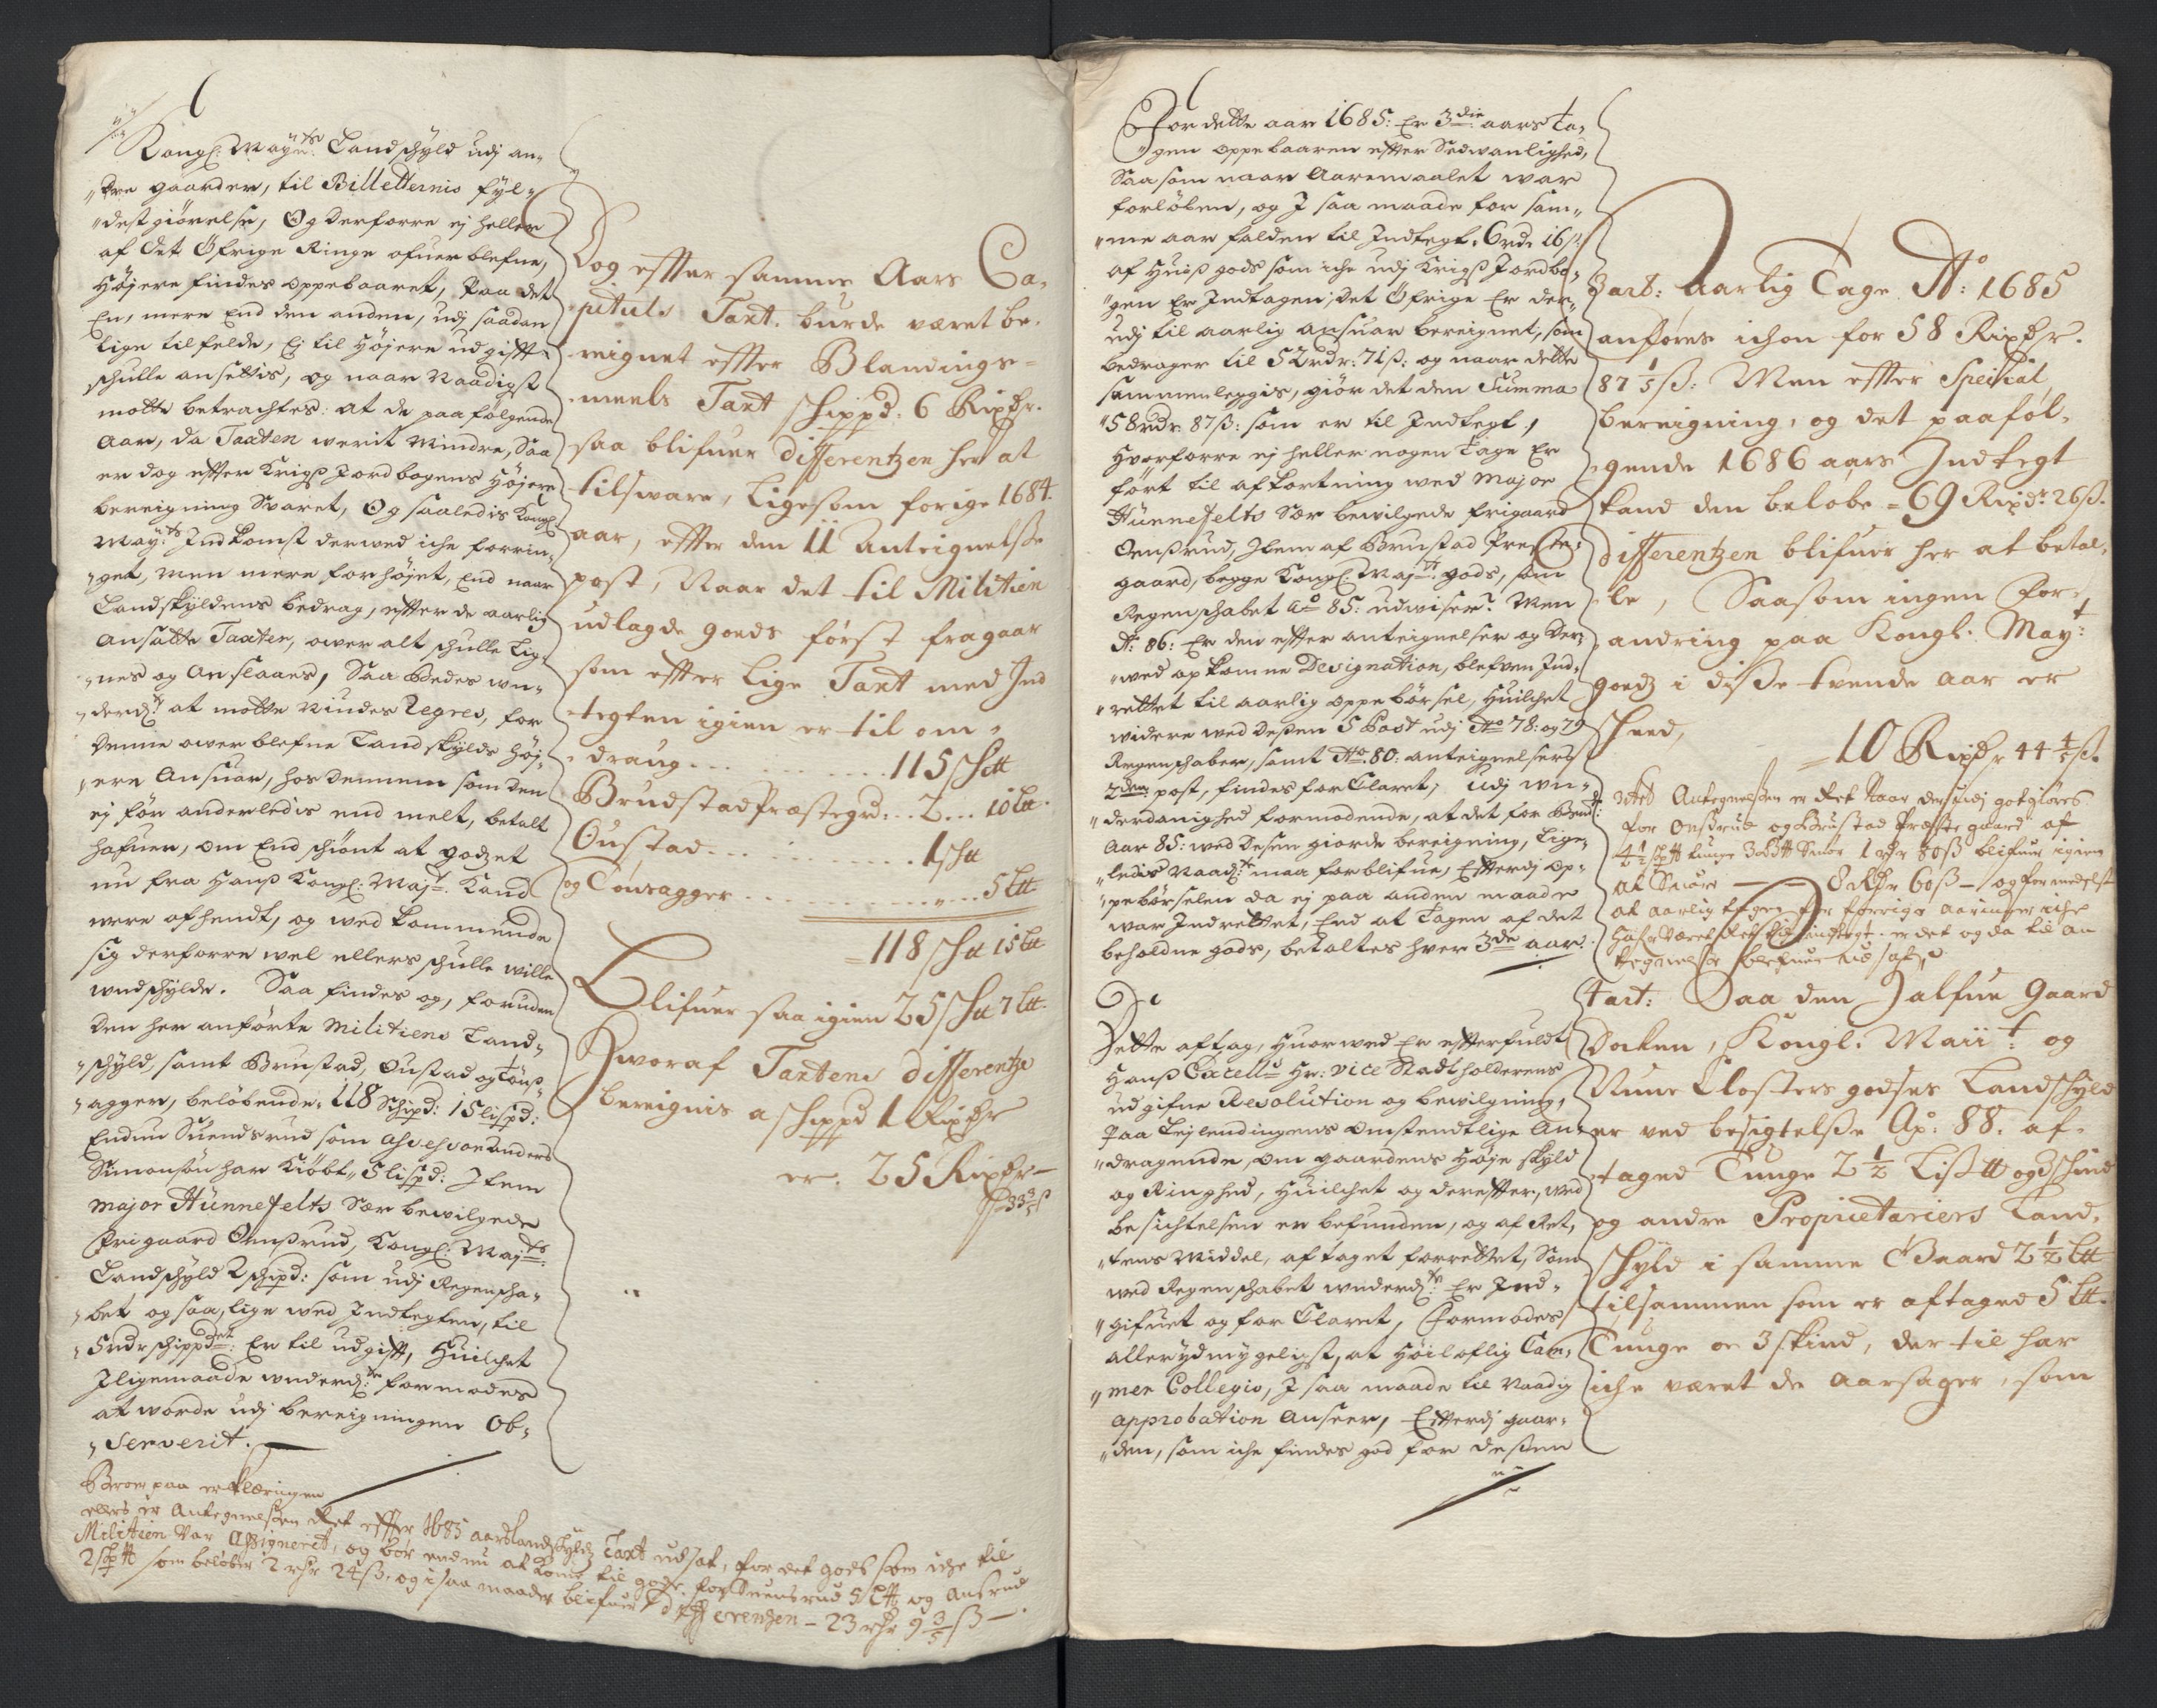 Kongl: May:ts Landschyld udj an„
„dre gaarder, til Billetternis fyl„
„dest giørelse, Og derforre ej heller
af det Øfrige Ringe ofuerblefne,
Højere findes oppebaaret, paa det
En, mere End den anden, udj saadan
lige tilfelde, Ej til Højere udgifft
schulle ansettis, og naar Naadigst
motte betrachtes: at de paafølgende
Aar, da Taxten werit Mindre, Saa
er dog effter Krigs Jordbogens Højere
bereigning Svaret, Og saaledis Kongl:
May:ts Indkomst derved iche forrin„
„get, men mere forhøjet, End naar
Landskyldens bedrag, effter de aarlig
ansatte Taxter, ower alt schulle lig„
„nes og anslaaes, Saa bedes wn„
„derd: at motte Niudes Regres, for
denne owerblefne Landskylds Høj„
„ere Ansuar, hos dennem som den
ej før anderledis end melt, betalt
hafuer, om End schiønt at godzet
nu fra Hans Kongl: Maj:t Kand
were afhendt, og wedkommende
sig derforre wel ellers schulle wille
wndschylde. Saa findes og, foruden
den her anførte Militiens Land„
„schyld, samt Brustad, Oustad og Tøns„
„agger, beløbende, 118 Schipd: 15 lispd:
Endnu Suendsrud som
Simonsøn har Kiøbt„ 5 lispd: Item
Major Hünnefelts Sær bewilgede
Frigaard Onsrud, Kongl: Maj:ts
Landschyld 2 schipd: som udj Regenscha„
„bet og saa, lige wed Indtegten, til
„5 rdr schippdet: Er til udgifft, Huilchet
Iligemaade wnderd: formodes
at worde udj bereigningen Ob„
„serverit.
Beroer paa erklæringen
ellers er Antegnelsen Ret effter 1685 aars landskyldz Taxt udsat, for det gods som iche til
Militien var Assignerit, og bør endnu at komme til gode, for Suensrud 5 L℔ og Onsrud
2 sk℔ som beløber 2 rdr 24 ß. og i saa maader blifuer differenzen – 23 rdr 9 3/5 ß –
Dog effter samme Aars Ca„
„pituls Taxt. burde været be„
„reignet effter Blandings„
„meels Taxt schippd: 6 Rixdr.
saa blifuer differentzen her at
tilsware, ligesom forige 1684.
aar, effter den 11 antegnelse
post, Naar det til Militien
udlagde goeds først fragaar
som effter lige Taxt med Ind
„tegten igien er til om„
„draug . . . . . . . . 115 sch℔
Brudstad Præstegrd: . . 2 . . . 10 L℔.
Oustad . . . . . . . . 1 sch℔
og Tønsagger . . . . . . . . „ . . . 5 L℔
= 118 sch℔ 15 L℔
Blifuer saa igien 25 sch℔ 7 L℔.
Hworaf Taxtens differentze
bereignis a schippd 1 Rixdr
er. 25 Rixdr –
33 3/5 ß
For dette aar 1685: Er 3die aars Ta„
„gen oppebaaren effter Sedwanlighed,
Saasom naar Aaremaalet war
forløben, og I saa maade for sam„
„me aar falden til Indtegt, 6 rd: 16 ß:
af Huis gods som iche udj Krigs Jordbo„
„gen Er Indtagen; det Øfrige Er der„
udj til aarlig ansuar bereignet, som
bedrager til 52 rdr: 71 ß: og naar dette
sammenleggis, giør det den Summa
„58 rdr: 87 ß: som er til Indtegt,
Hvorforre ej heller nogen Tage Er
ført til afkortning wed Major
Hünnefelts Sær bewilgede frigaard
Onsrud, Item af Brustad Præste„
gaard, begge Kongl: Maj:ts gods, som
Regenschabet Ao 85: udwiser. Men
Ao: 86: Er den effter anteignelser og der„
„wed opkomne Designation, blefven Ind„
„rettet til aarlig oppebørsel, Huilchet
widere wed desen 5 Post udj Ao 78: og 79
Regenschaber, samt Ao. 80: anteignelsers
2den: post, findes forClaret, udj wn„
„derdanighed formodende, at det for
Aar 85: wed desen giorde bereigning, lige„
„ledis Naad: maa forblifue, Efterdj op„
„pebørselen da ej paa anden maade
war Indrettet, End at Tagen af det
beholdne gods, betaltes hver 3de aar.
Dette aftag, Huorwed Er efterfuldt
Hans Excell: Hr: Vice Stadtholderens
udgifne Resolution og bewilgning,
Paa Lejlendingens omstendtlige An„
„dragende, om gaardens Høje skyld
og Ringhed, Huilchet og derefter, wed
besichtelsen er befunden, og af Ret„
„tens Middel, aftaget forrettet, Som
wed Regenschabet wnderd: Er Ind„
„gifuet og forClaret, Formodes
allerydmygeligst, at Høiloflig Cam„
„mer Collegio, I saa maade til Naadig
approbation anseer, Efterdj gaar„
„den, som iche findes god for desen
3 art: Aarlig Tage Ao: 1685
anføres ichon for 58 Rixdr.
87 1/5 ß: Men effter Special
bereigning, og det paaføl„
„gende 1686 aars Indtegt
kand den beløbe = 69 Rixd: 26 ß.
differentzen blifuer her at betal„
„le, Saasom ingen For„
„andring paa Kongl. May:t
goedz i disse tvende aar er
scheed,
= 10 Rixdr 44 4/5 ß.
Ved Antegnelsen er Ret Naar derudj godtgiøres
for Onsrud og Brustad Præstegaard af
4 1/2 sk℔ tunge 3 Smør 1 rdr 80 ß blifuer igien
at Svare – 8 Rdr 60 ß – og formedelst
at aarlig tagen for forrige aaringer iche
hafr Været ført til indtegt. er det og da til an
tegnelse blefuen udsat.
4 art: Paa den Halfue Gaard
Docken, Kongl. Maii:t og
Nune Closters godses Landschyld
er ved besigtelse Ao: 88. af„
„taged Tunge 2 1/2 Lis℔ og schind
og andre Proprietariers Land„
schyld i samme Gaard 2 1/2 L℔
tilsammen som er aftaged 5 L℔.
Tunge oc 3 skind, der til har
iche været de aarsager, som